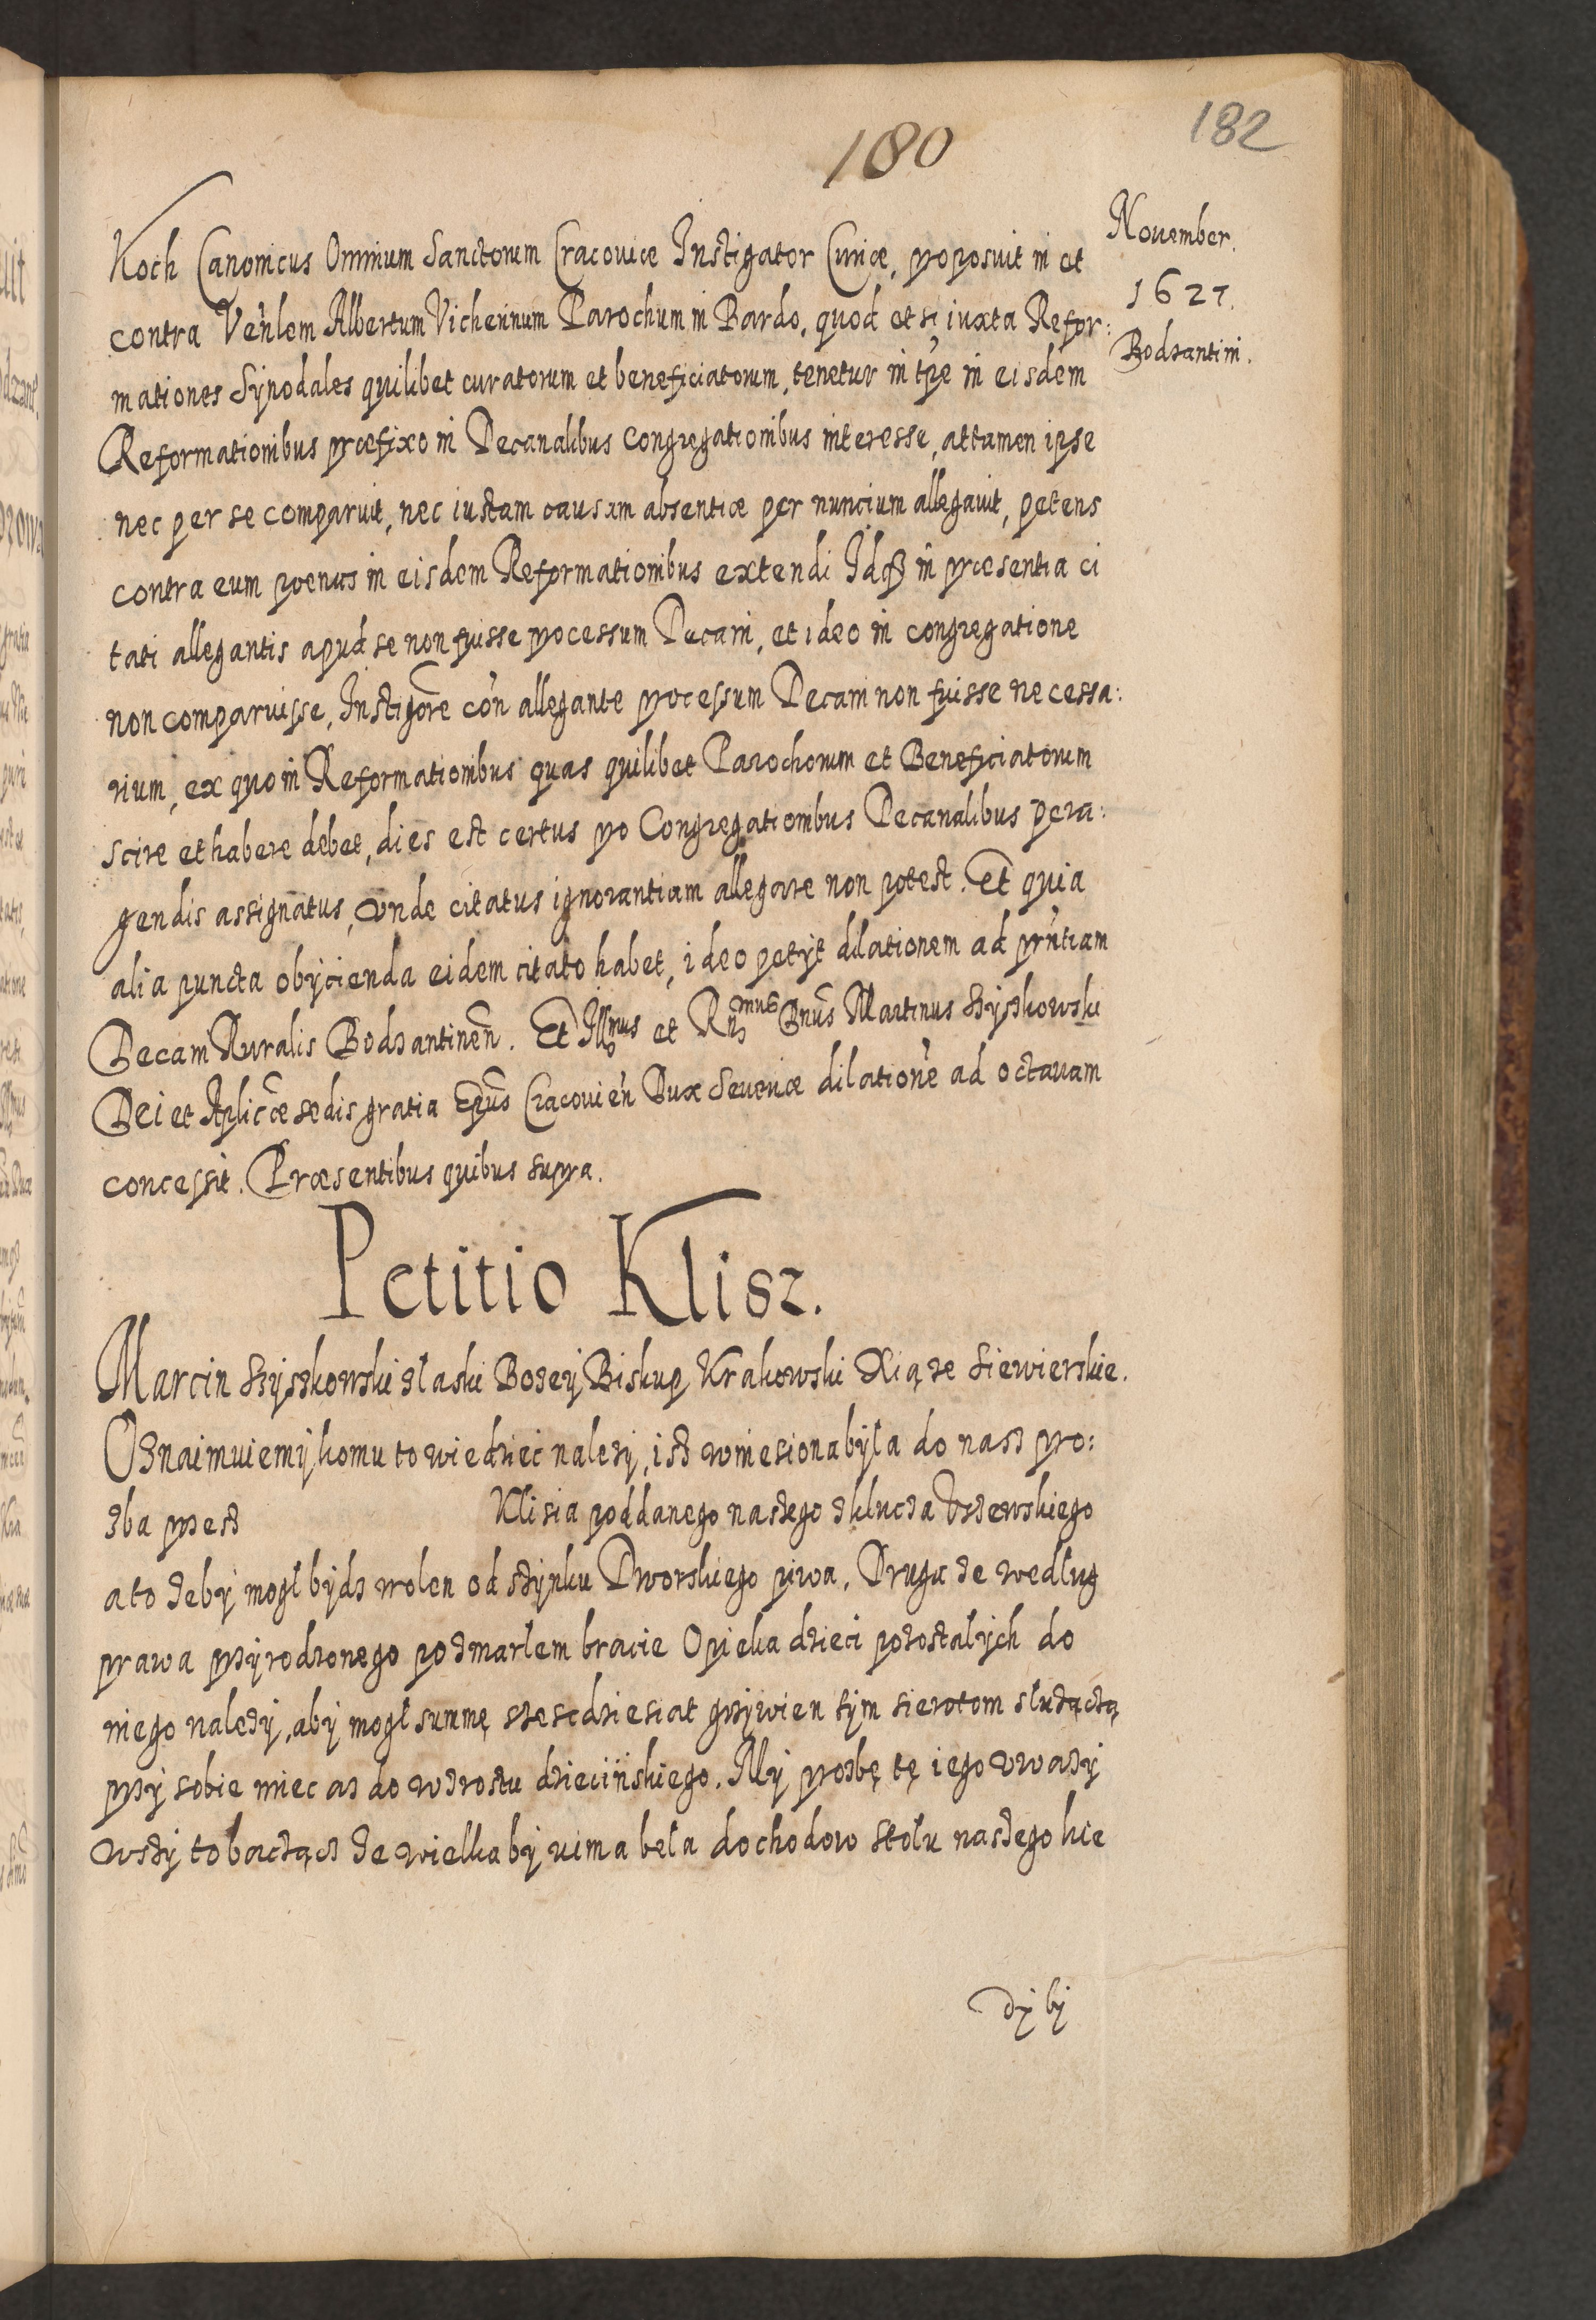 180
182
November.
1627.
Bodzantini.
Koch Canonicus Omnium Sanctorum Cracoviæ Instigator Curiæ, proposuit in et
contra Venlem Albertum Vichennum Parochum in Bardo, quod etsi iuxta Refor:
mationes Synodales quilibet curatorum et beneficiatorum, tenetur in tpre in eisdem
Reformationibus præfixo in Decanalibus Congregationibus interesse, attamen ipse
nec per se comparuit, nec iustam causam absentiæ per nuncium allegauit, petens
contra eum pœnas in eisdem Reformationibus extendi Idqȝ in præsentia ci
tati allegantis apud se non fuisse processum Decani, et ideo in congregatione
non comparuisse, Instigore con allegante processum Decani non fuisse necessa:
rium, ex quo in Reformationibus quas quilibet Parochorum et Beneficiatorum
scire et habere debet, dies est certus pro Congregationibus Decanalibus pera:
gendis assignatus, vnde citatus ignorantiam allegare non potest. Et quia
alia puncta obijcienda eidem citato habet, ideo petijt dilationem ad prntiam
Decani Ruralis Bodzantinen. Et Illmus et Rndmus Dnus Martinus Szyszkowski
Dei et Aplicæ sedis gratia Epus Cracouien Dux Seueriæ dilatione ad octauam
concessit. Præsentibus quibus supra.
Petitio Klisz.
Marcin Szyszkowski z łaski Bozey Biskup Krakowski Xiąze Siewierskie.
Oznaimuiemy komu to wiedziec nalezy, isz wniesiona była do nasz pro:
zba przesz Klisia poddanego naszego z klucza Vszewskiego
a to zeby mogł bydz wolen od szynku Dworskiego piwa. Druga ze wedlug
prawa przyrodzonego po zmarłem bracie Opieka dzieci pozostałych do
niego nalezy, aby mogł summę szescdziesiat grzywien tym sierotom słuzączą
przy sobie miec az do wzrostu dziecinskiego. My prozbę tę iego vwazy
wszy to bacząc ze wielka by vima beła dochodow stołu naszego kie
dy by